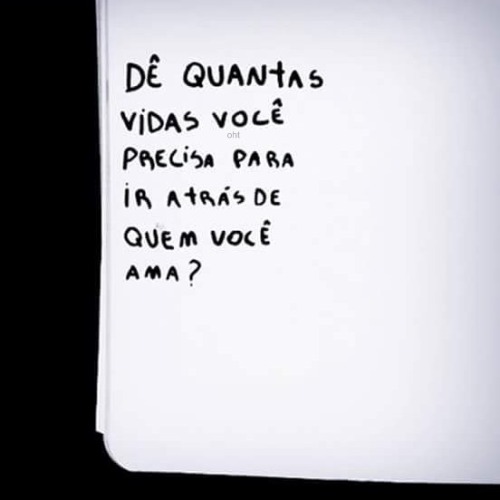 DÊ QUANTAS
VIDAS VOCÊ
oht
PRECISA PARA
IR ATRÁS DE
QUEM VOCÊ
AMA?